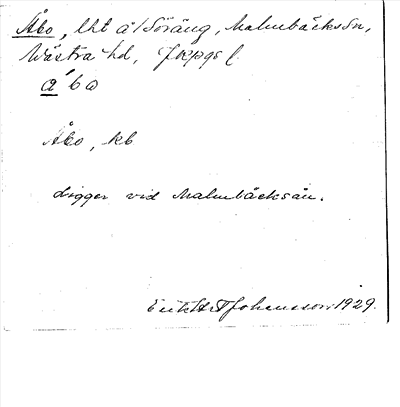 Åbo, lht å Söräng, Malmbäcks sn,
Västra hd, Jkpgs l.
a´bω
Åbo, kb
Ligger vid Malmbäcksån.
Erik Johansson 1929.